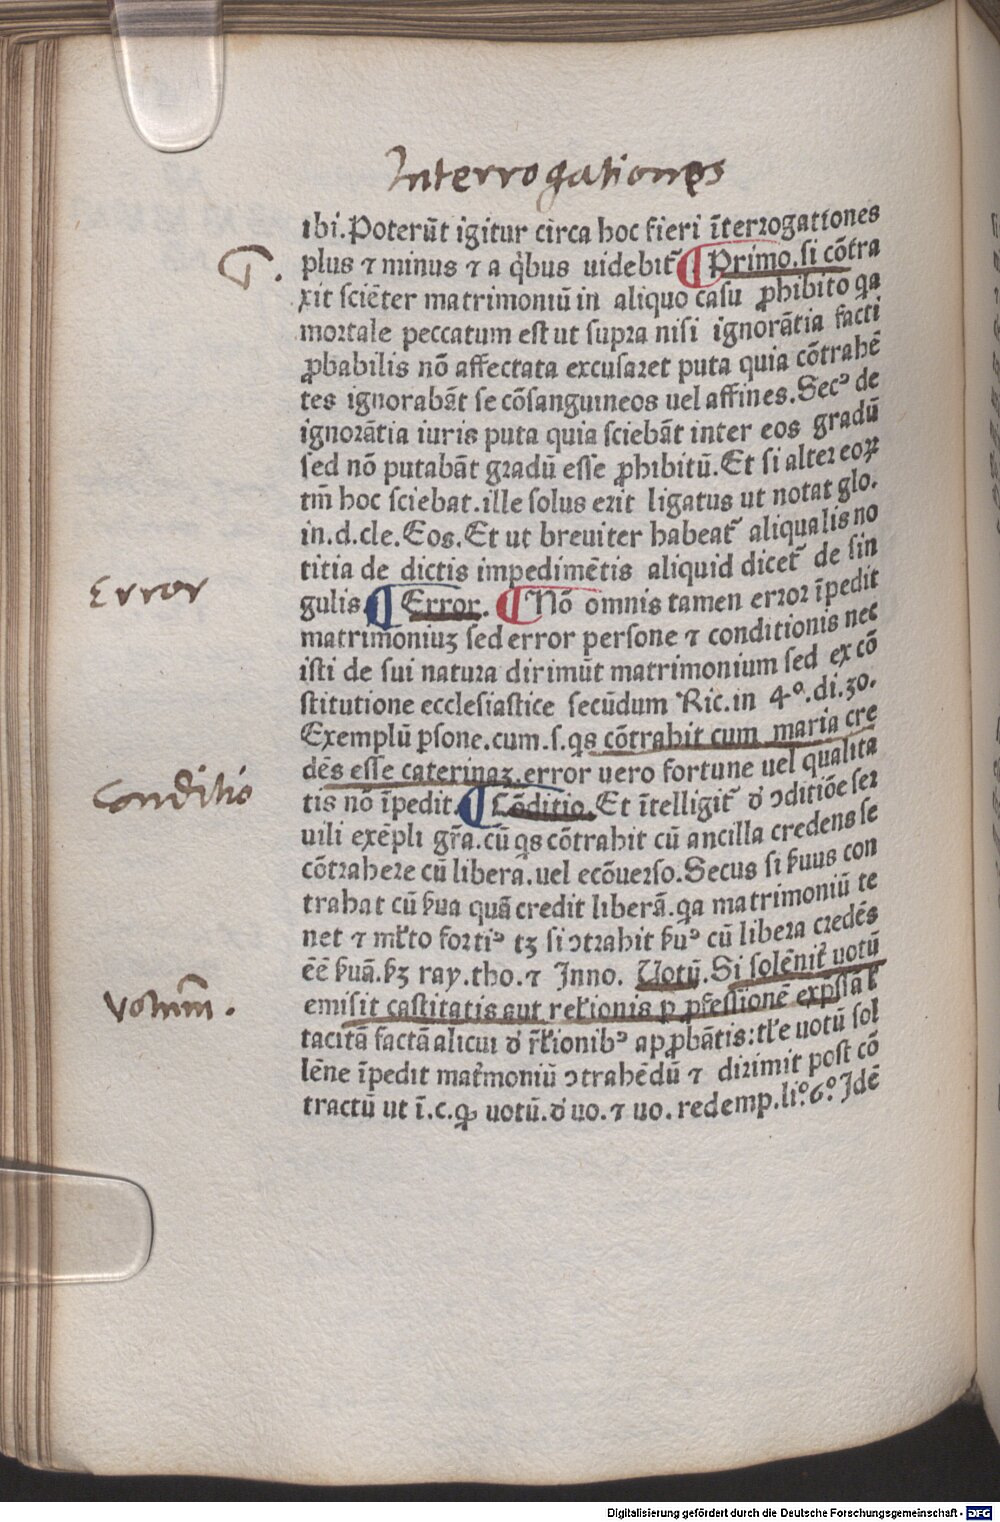 Interrogationes
ibi.Poterūt igitur circa hoc fieri īterrogationes
plus ⁊ minus ⁊ a q̇bus uidebit᷑ ¶ Primo.si cōtra
xit sciēter matrimoniū in aliquo casu ꝓhibito qa
mortale peccatum est ut supra nisi ignorātia facti
ꝓbabilis nō affectata excusaret puta quia cōtrahē
tes ignorabāt se cōsanguineos uel affines.Secꝰ de
ignorātia iuris puta quia sciebāt inter eos gradū
sed nō putabāt gradū esse ꝓhibitū.Et si alter eoꝝ
tm̄ hoc sciebat.ille solus erit ligatus ut notat glo.
in.d.cle.Eos.Et ut breuiter habeat᷑ aliqualis no
titia de dictis impedimētis aliquid dicet᷑ de sin
Error
gulis ¶ Error. ¶ Nō omnis tamen error īpedit
matrimoniuꝫ sed error persone ⁊ conditionis nec
isti de sui natura dirimūt matrimonium sed ex cō
stitutione ecclesiastice secūdum Ric.in 4º.di.30.
Exemplū ꝑsone.cum.s.qs cōtrahit cum maria cre
dēs esse caterinaꝫ.error uero fortune uel qualita
Conditio
tis nō īpedit. ¶ Cōditio.Et ītelligit᷑ ꝺ ꝯditiōe ser
uili exēpli gr̄a.cū qs cōtrahit cū ancilla credens se
cōtrahere cū libera.uel ecōuerso.Secus si ẜuus con
trahat cū ẜua quā credit liberā.qa matrimoniū te
net ⁊ ml̄to fortiꝰ tꝫ si ꝯtrahit ẜuꝰ cū libera credēs
ēē ẜuā.ẜꝫ ray.tho.⁊ Inno. Uotū.Si solēnit᷑ uotū
Votum.
emisit castitatis aut rel̄ionis ꝑ ꝓfessionē exp̄ssā ł
tacitā factā alicui ꝺ r̄l̄ionibꝰ apꝓbātis:tl̄e uotū sol
lēne īpedit mat᷑moniū ꝯtrahēdū ⁊ dirimit post cō
tractū ut ī.c.ꝙ uotū.ꝺ uo.⁊ uo.redemp.liº.6º.Idē
Digitalisierung gefördert durch die Deutsche Forschungsgemeinschaft - DFG